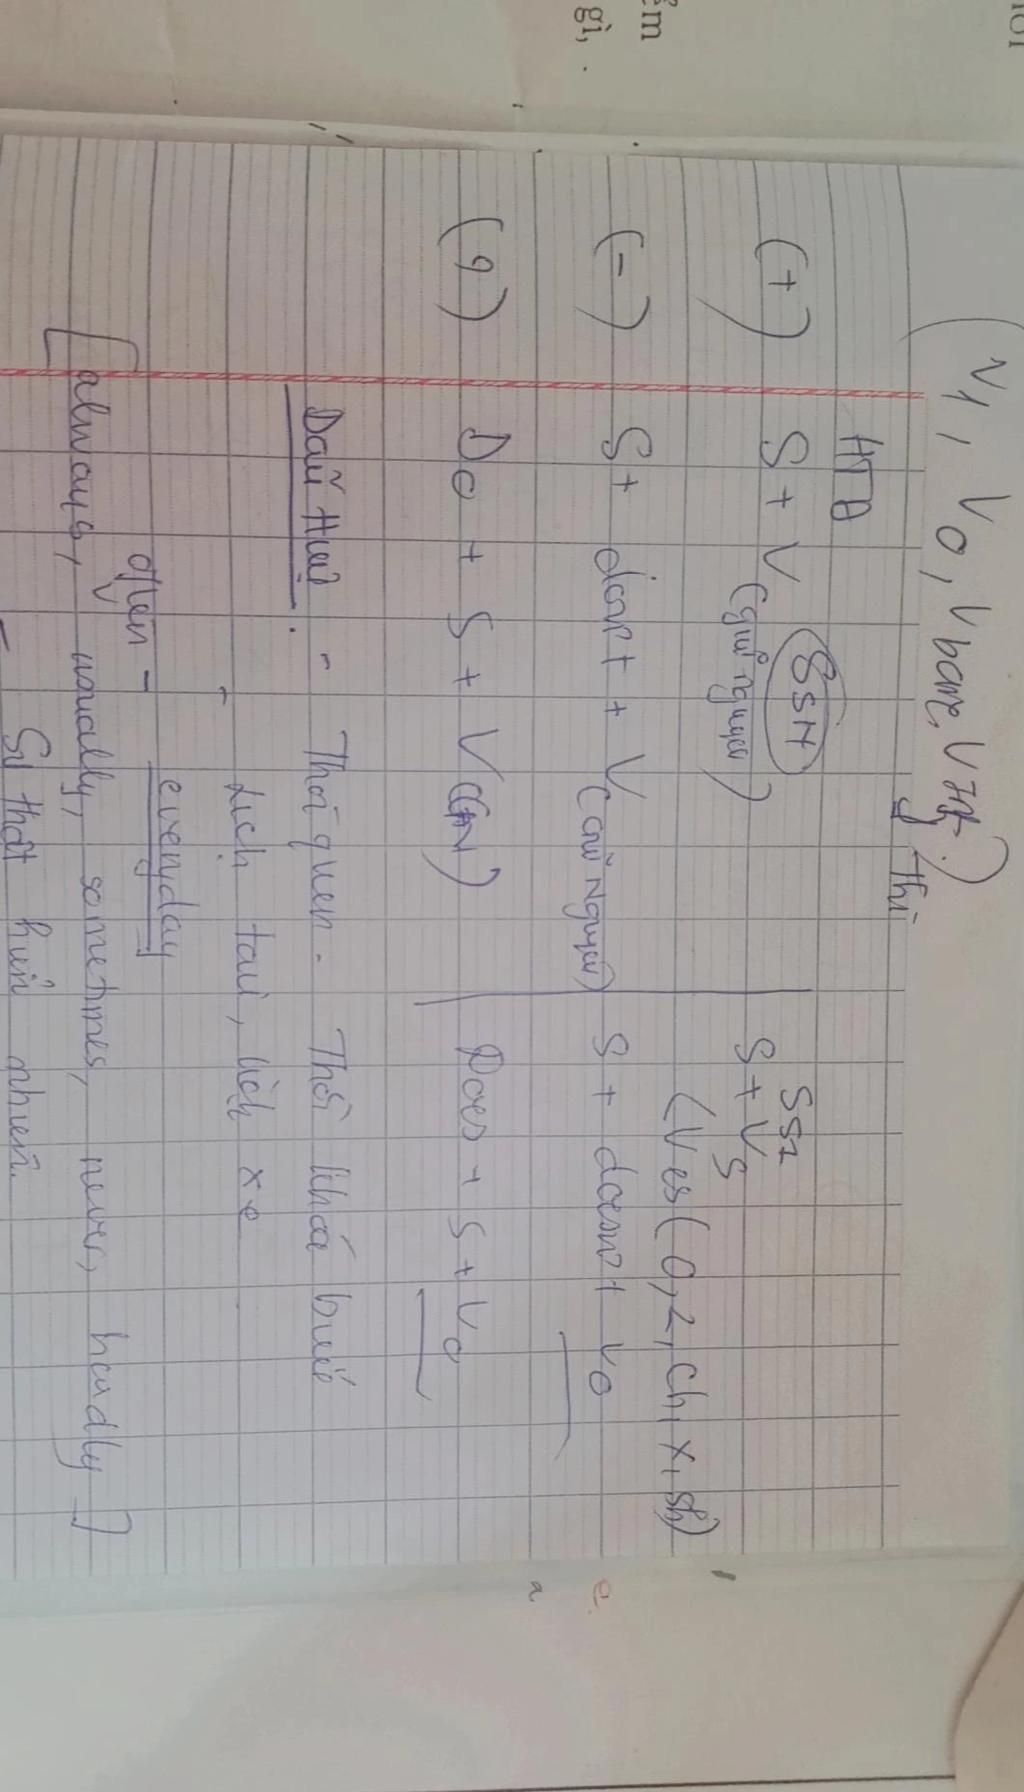 (V1, V0, Vbare, Vinf.)
Thì
HTĐ
(+) S + V SSN
(giữ nguyên)
SS1
S + Vs
(Ves (O, Z, ch, x, sh)
(-) S + don't + V (giữ nguyên)
S + doesn't V0
(?) Do + S + V (GN)
Does + S + V0
Dấu Hiệu. - Thói quen. Thời khoá biểu
- Lịch tàu, lịch xe
often - everyday
[always, usually, sometimes, never, hardly]
- Sự thật hiển nhiên.
ểm
gì,